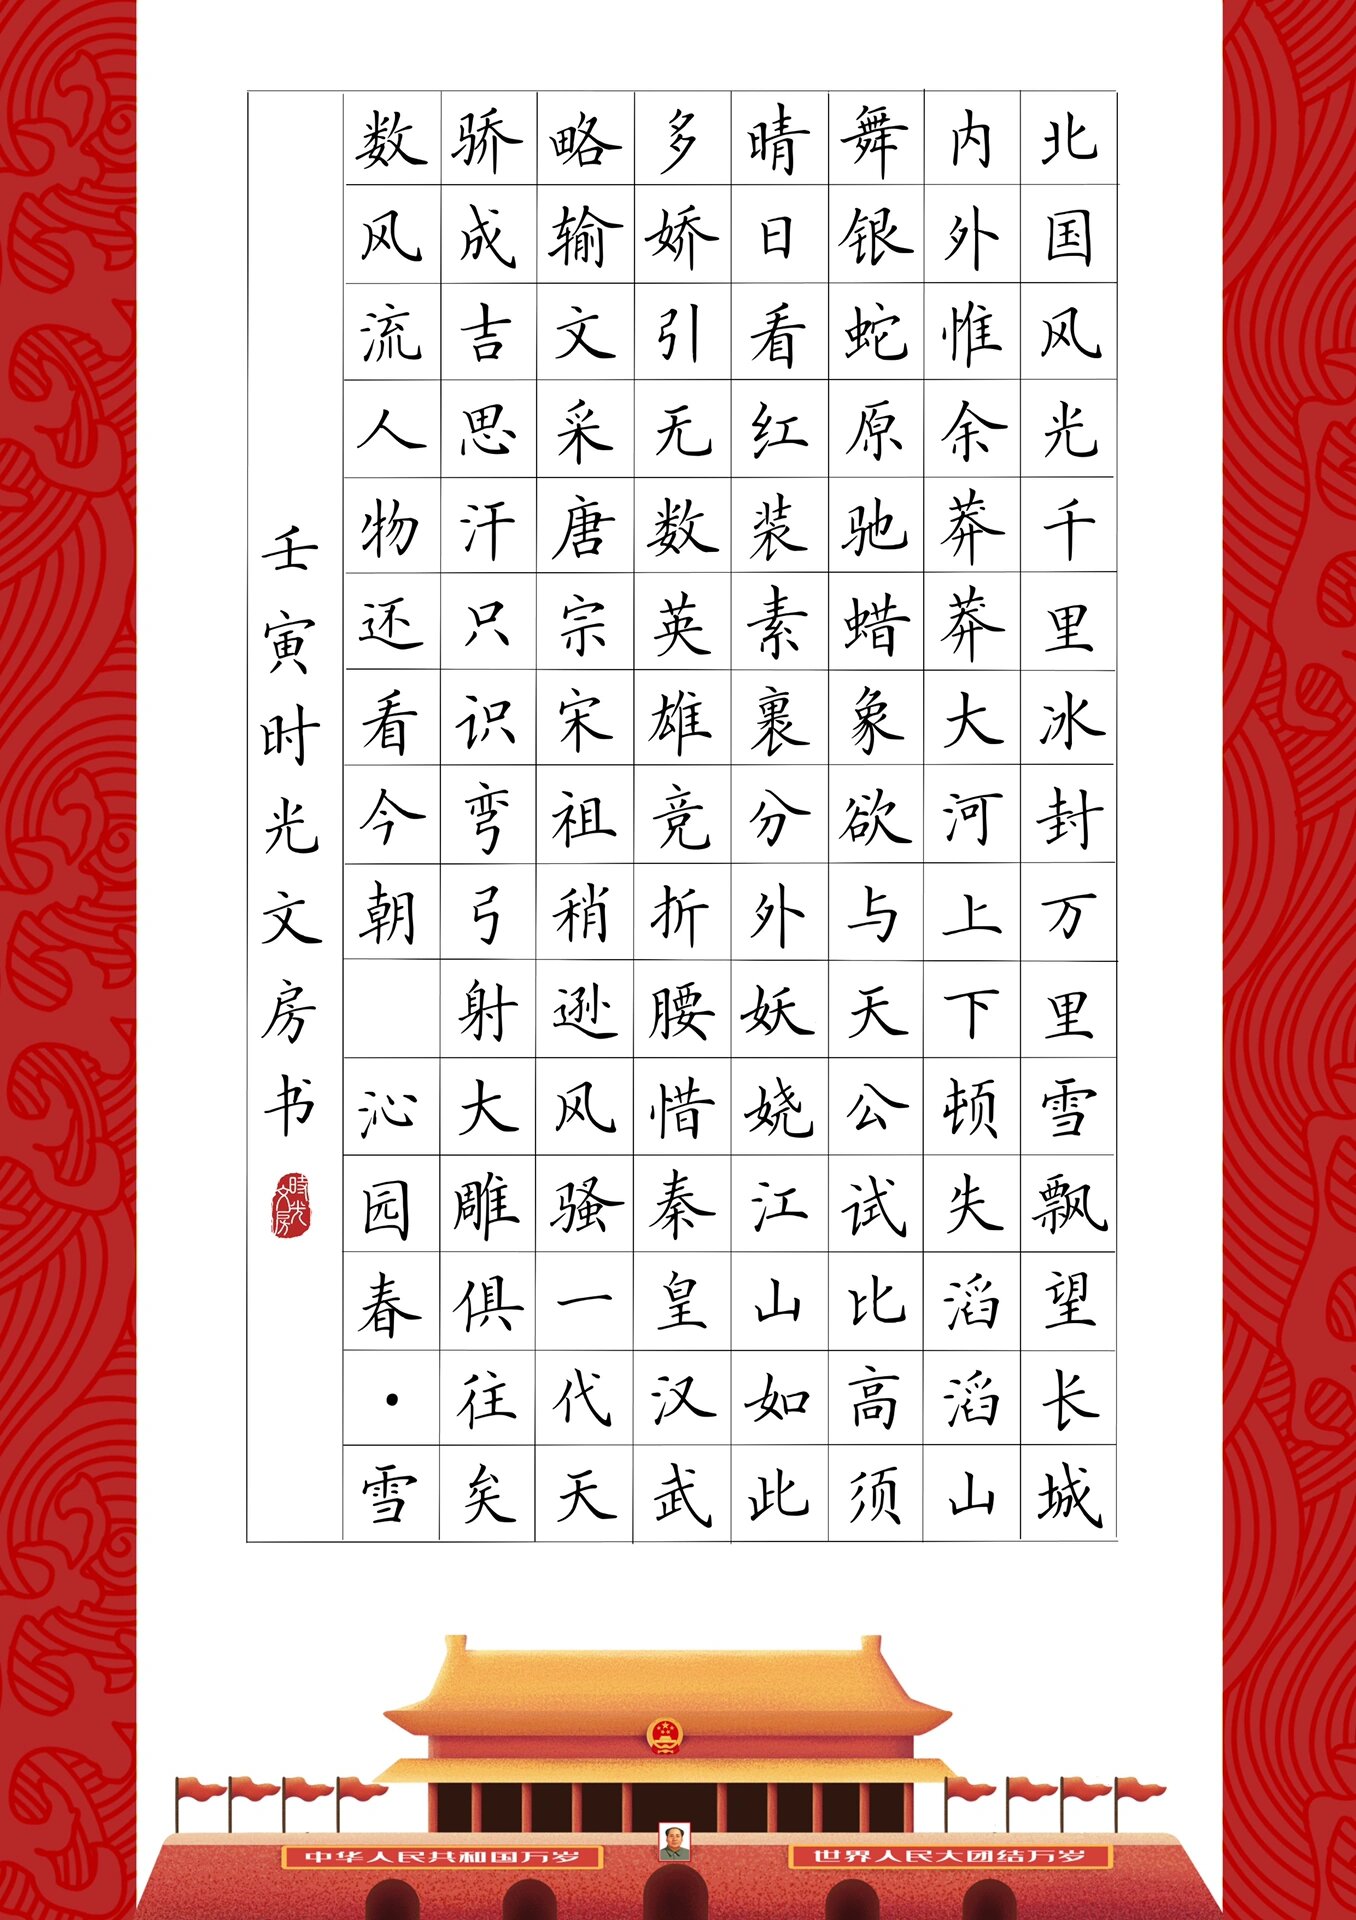 北国风光千里冰封万里雪飘望长城
内外惟余莽莽大河上下顿失滔滔山
舞银蛇原驰蜡象欲与天公试比高须
晴日看红装素裹分外妖娆江山如此
多娇引无数英雄竞折腰惜秦皇汉武
略输文采唐宗宋祖稍逊风骚一代天
骄成吉思汗只识弯弓射大雕俱往矣
数风流人物还看今朝 沁园春·雪
壬寅时光文房书
時光文房
中华人民共和国万岁
世界人民大团结万岁